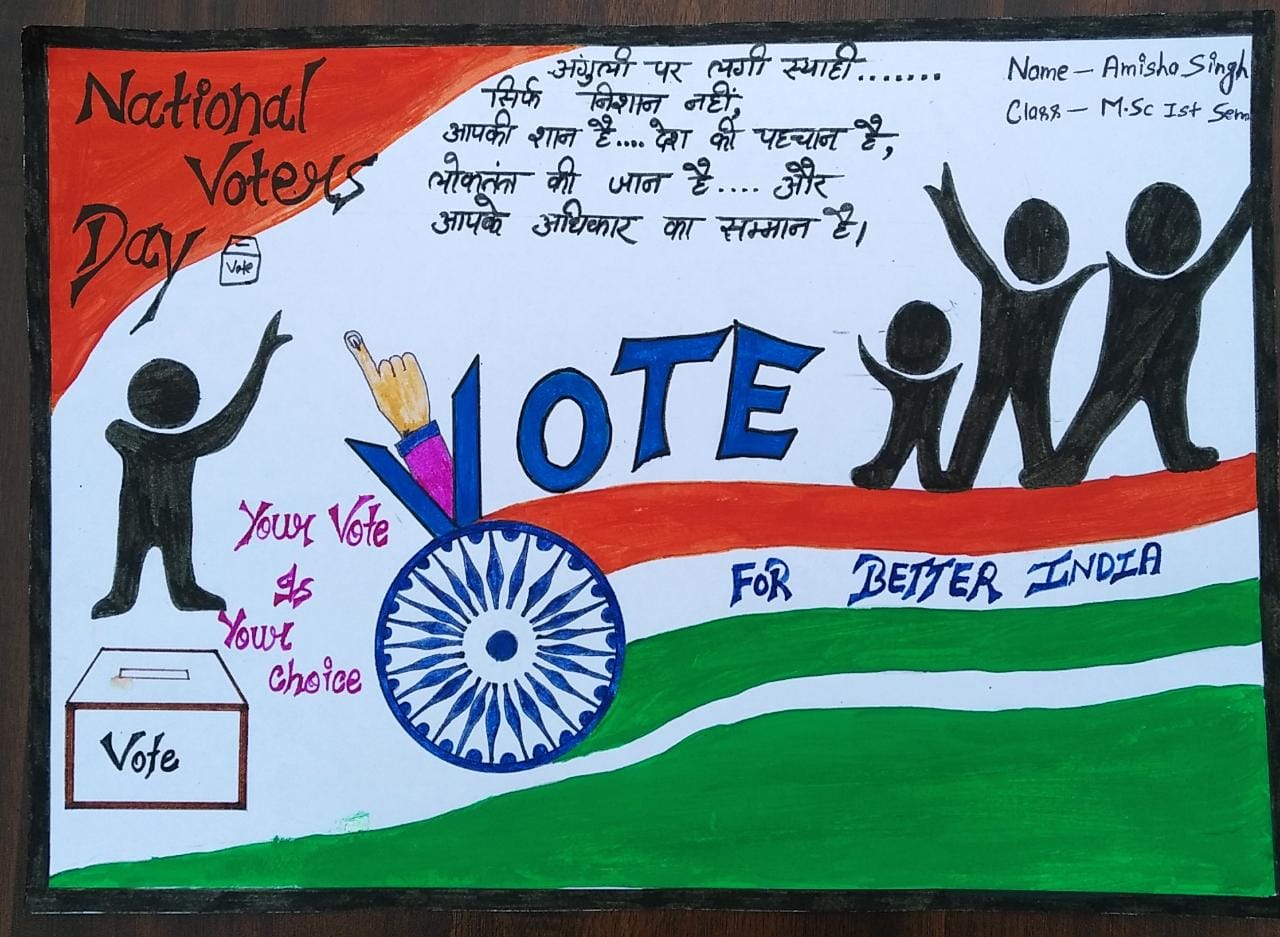 National
Voters
Day
Vote
अंगुली पर लगी स्याही.......
सिर्फ निशान नहीं,
आपकी शान है.... देश की पहचान है,
लोकतंत्र की जान है.... और
आपके अधिकार का सम्मान है।
Name - Amisha Singh
Class - M.Sc Ist Sem
VOTE
Your Vote
Is
Your
choice
FOR BETTER INDIA
Vote